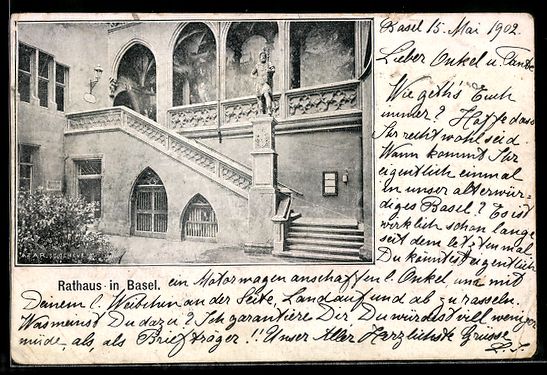 Basel 15. Mai 1902.
Lieber Onkel u. Tante
Wie geths Euch
immer? Hoffe dass
Ihr recht wohl seid.
Wann kommt Ihr
eigentlich einmal
in unser alterwür-
diges Basel? Es ist
wirklich schon lange
seit dem letzten mal
Du könntest eigentlich
Rathaus in Basel.
ein Motorwagen anschaffen l. Onkel, um mit
Deinem l. Weibchen an der Seite, Land auf und ab zu rasseln.
Was meinst Du dazu? Ich garantiere Dir Du würdest viel weniger
müde, als, als Briefträger!! Unser Aller Herzlichste Grüsse